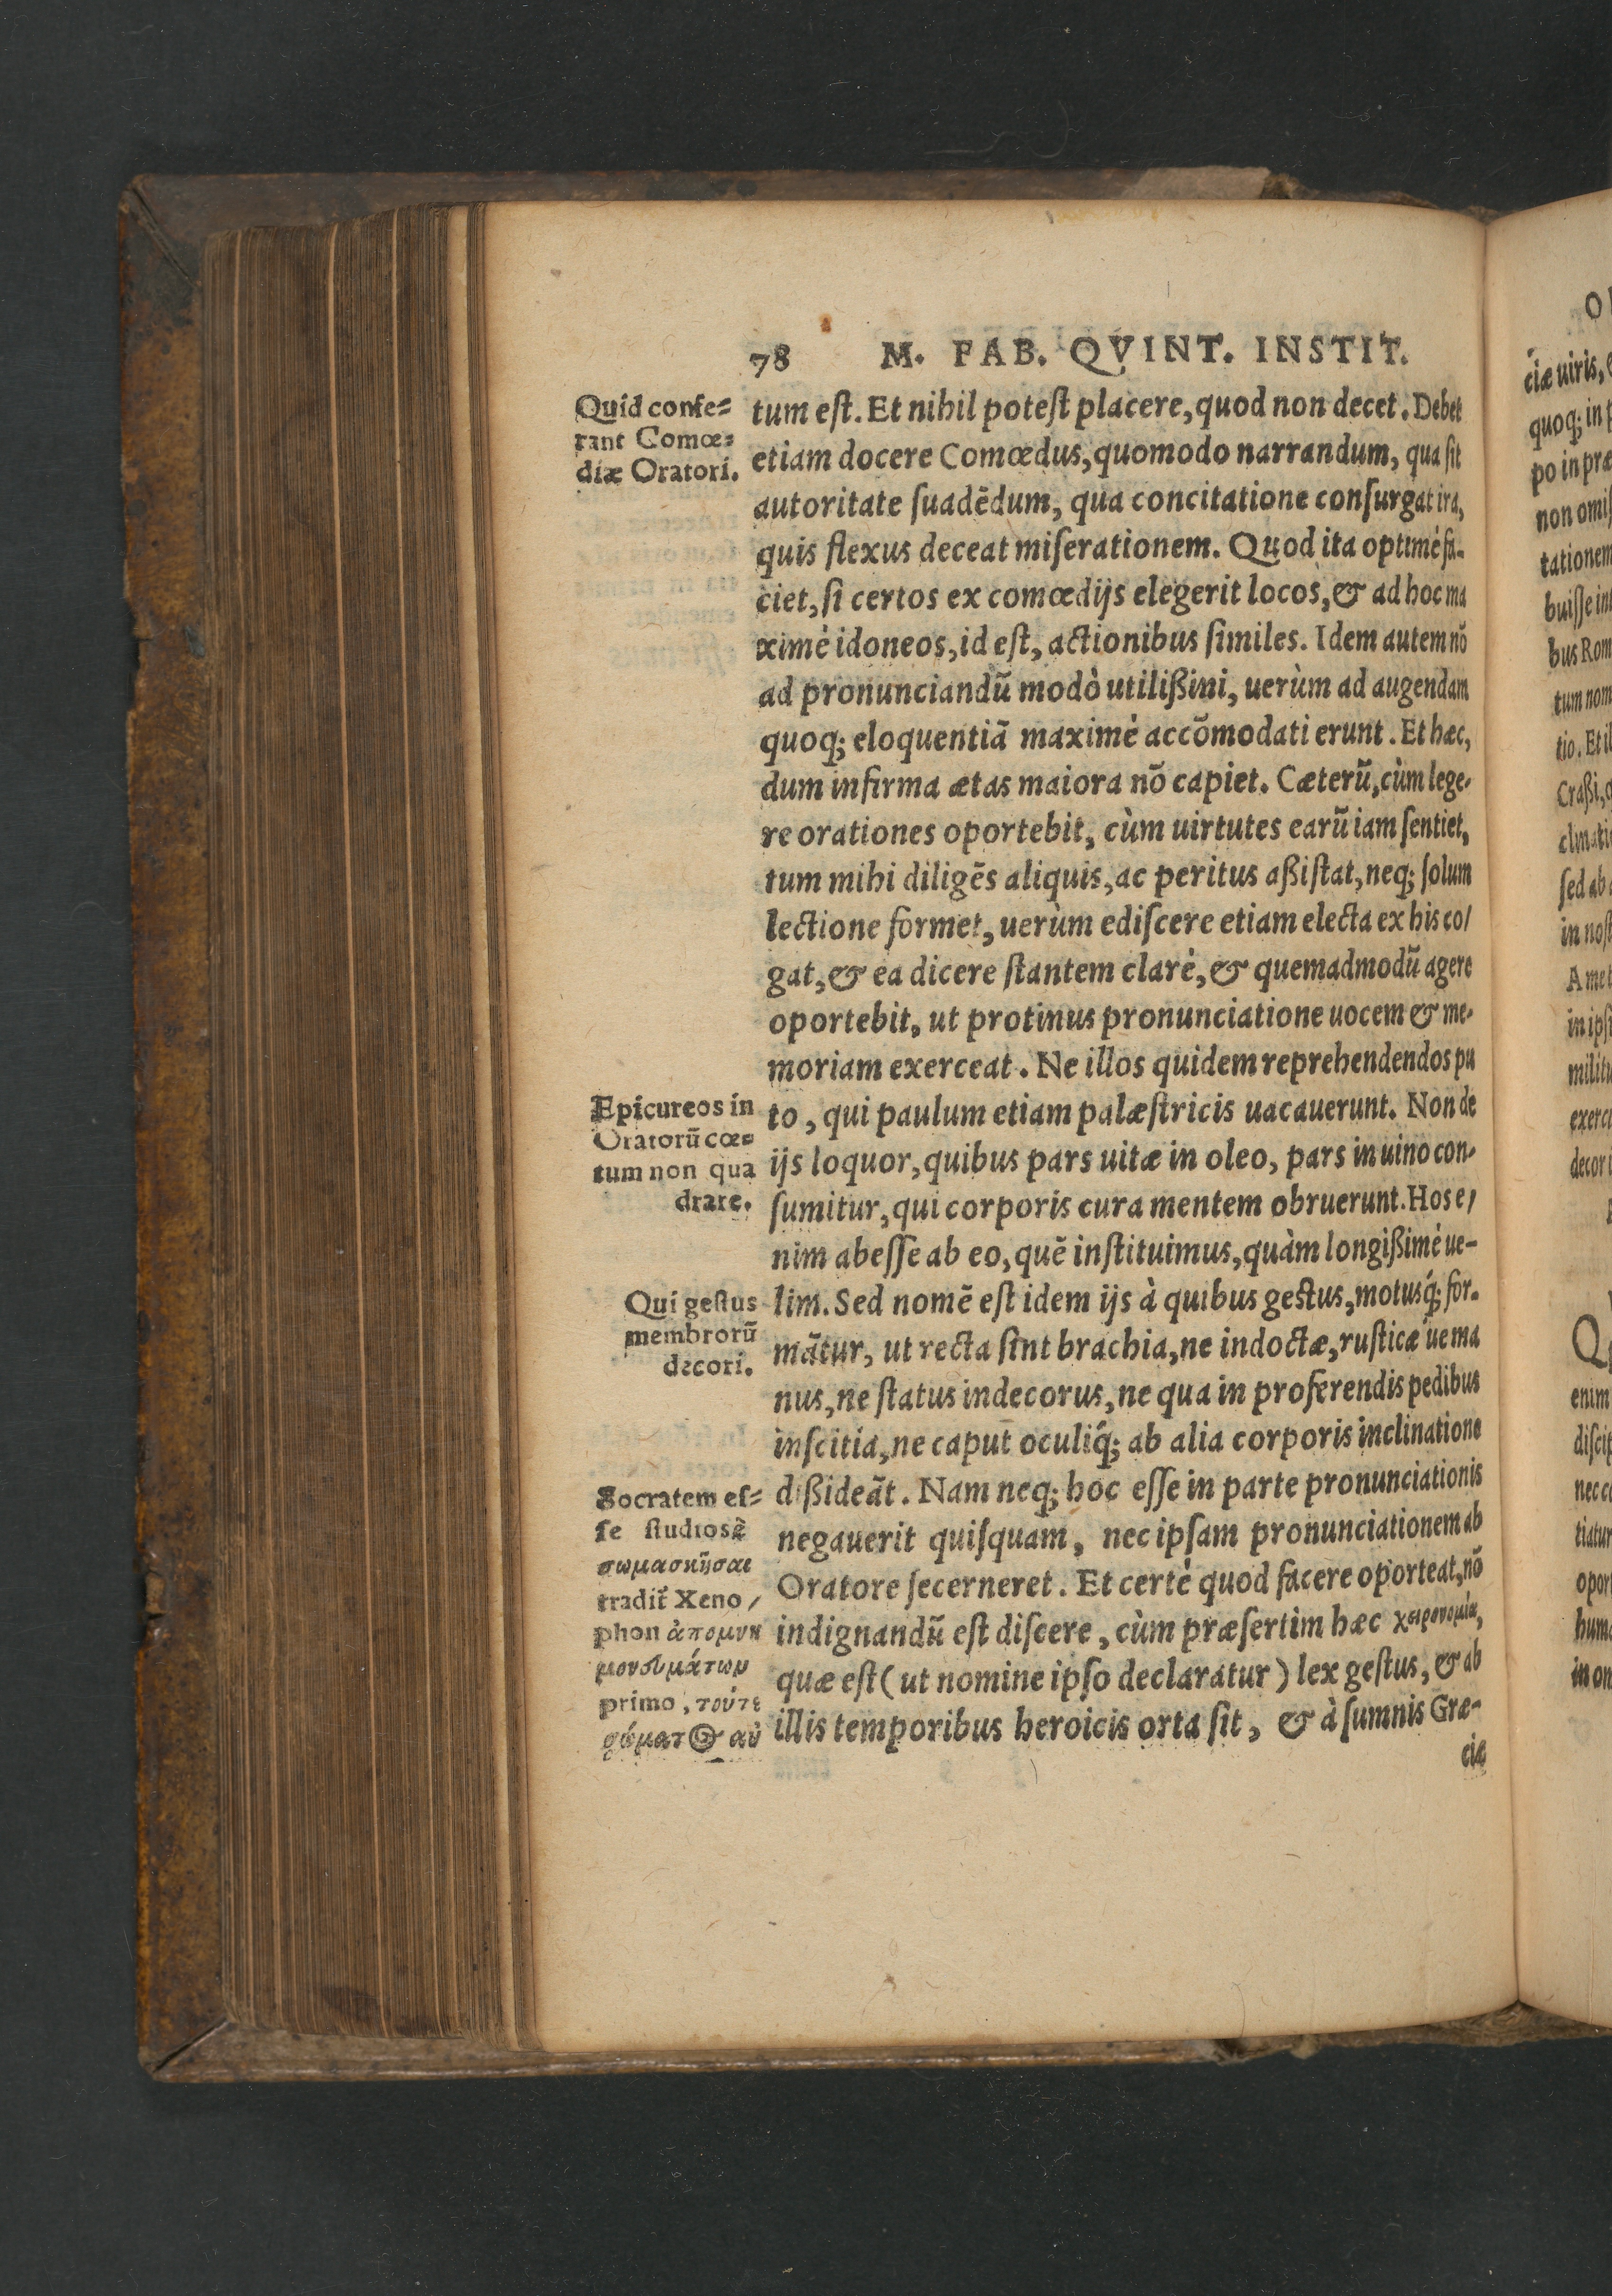 78 M. FAB. QVINT. INSTIT.
Quid confe⸗
rant Comœ⸗
diæ Oratori.
tum eſt. Et nihil poteſt placere, quod non decet. Debet
etiam docere Comœdus, quomodo narrandum, qua ſit
autoritate ſuadēdum, qua concitatione conſurgat ira,
quis flexus deceat miſerationem. Quod ita optimé fa-
ciet, ſi certos ex comœdijs elegerit locos, & ad hoc ma
ximé idoneos, id eſt, actionibus ſimiles. Idem autem nō
ad pronunciandū modò utilißimi, uerùm ad augendam
quoq; eloquentiā maximé accōmodati erunt. Et hæc,
dum infirma ætas maiora nō capiet. Cæterū, cùm lege-
re orationes oportebit, cùm uirtutes earū iam ſentiet,
tum mihi diligēs aliquis, ac peritus aßiſtat, neq; ſolum
lectione formet, uerùm ediſcere etiam electa ex his co/
gat, & ea dicere ſtantem claré, & quemadmodū agere
oportebit, ut protinus pronunciatione uocem & me-
moriam exerceat. Ne illos quidem reprehendendos pu
Epicureos in
Oratorū cœ⸗
tum non qua
drare.
to, qui paulum etiam palæſtricis uacauerunt. Non de
ijs loquor, quibus pars uitæ in oleo, pars in uino con-
ſumitur, qui corporis cura mentem obruerunt. Hos e/
nim abeſſe ab eo, quē inſtituimus, quàm longißimé ue-
Qui geſtus
membrorū
decori.
lim. Sed nomē eſt idem ijs à quibus geſtus, motusq́; for-
mātur, ut recta ſint brachia, ne indoctæ, ruſticæ ue ma
nus, ne ſtatus indecorus, ne qua in proferendis pedibus
inſcitia, ne caput oculiq́; ab alia corporis inclinatione
Socratem eſ⸗
ſe ſtudioſē
σωμασκῆσαι
tradit Xeno/
phon ἀπομνη
μονευμάτων
primo, τούτε
σώματος αὐ
dißideāt. Nam neq; hoc eſſe in parte pronunciationis
negauerit quiſquam, nec ipſam pronunciationem ab
Oratore ſecerneret. Et certé quod facere oporteat, nō
indignandū eſt diſcere, cùm præſertim hæc χειρονομία,
quæ eſt (ut nomine ipſo declaratur) lex geſtus, & ab
illis temporibus heroicis orta ſit, & à ſumnis Græ-
ciæ
ciæ uiris,
quoq; in
po in præ
tationem
bus Rom
tum nom
tio. Et il
Craßi,
ſed ab
in noſt
A me
in ipſ
enim
diſcip
tiatur
in on